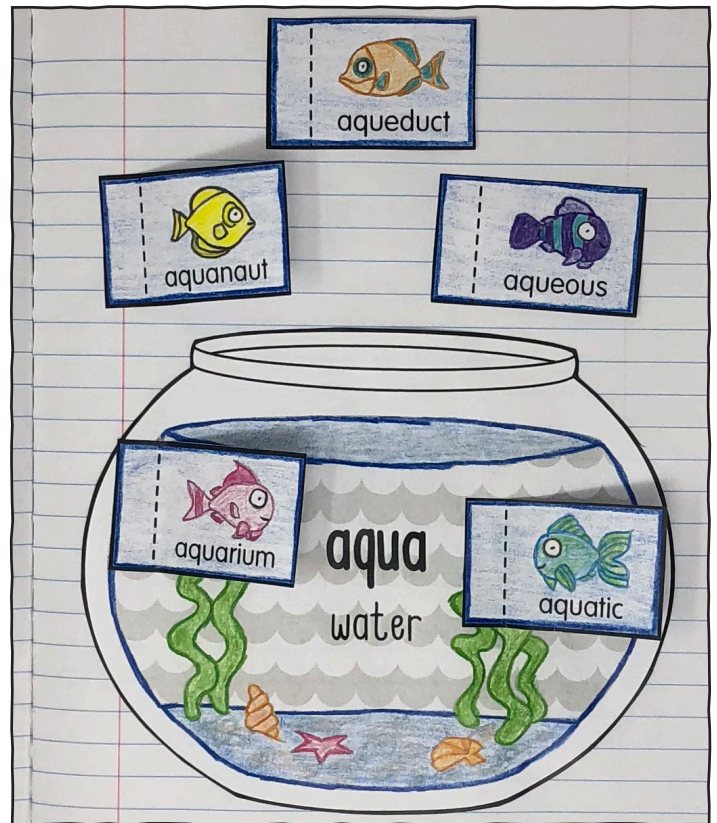 aqueduct
aquanaut
aqueous
aquarium
aqua
water
aquatic